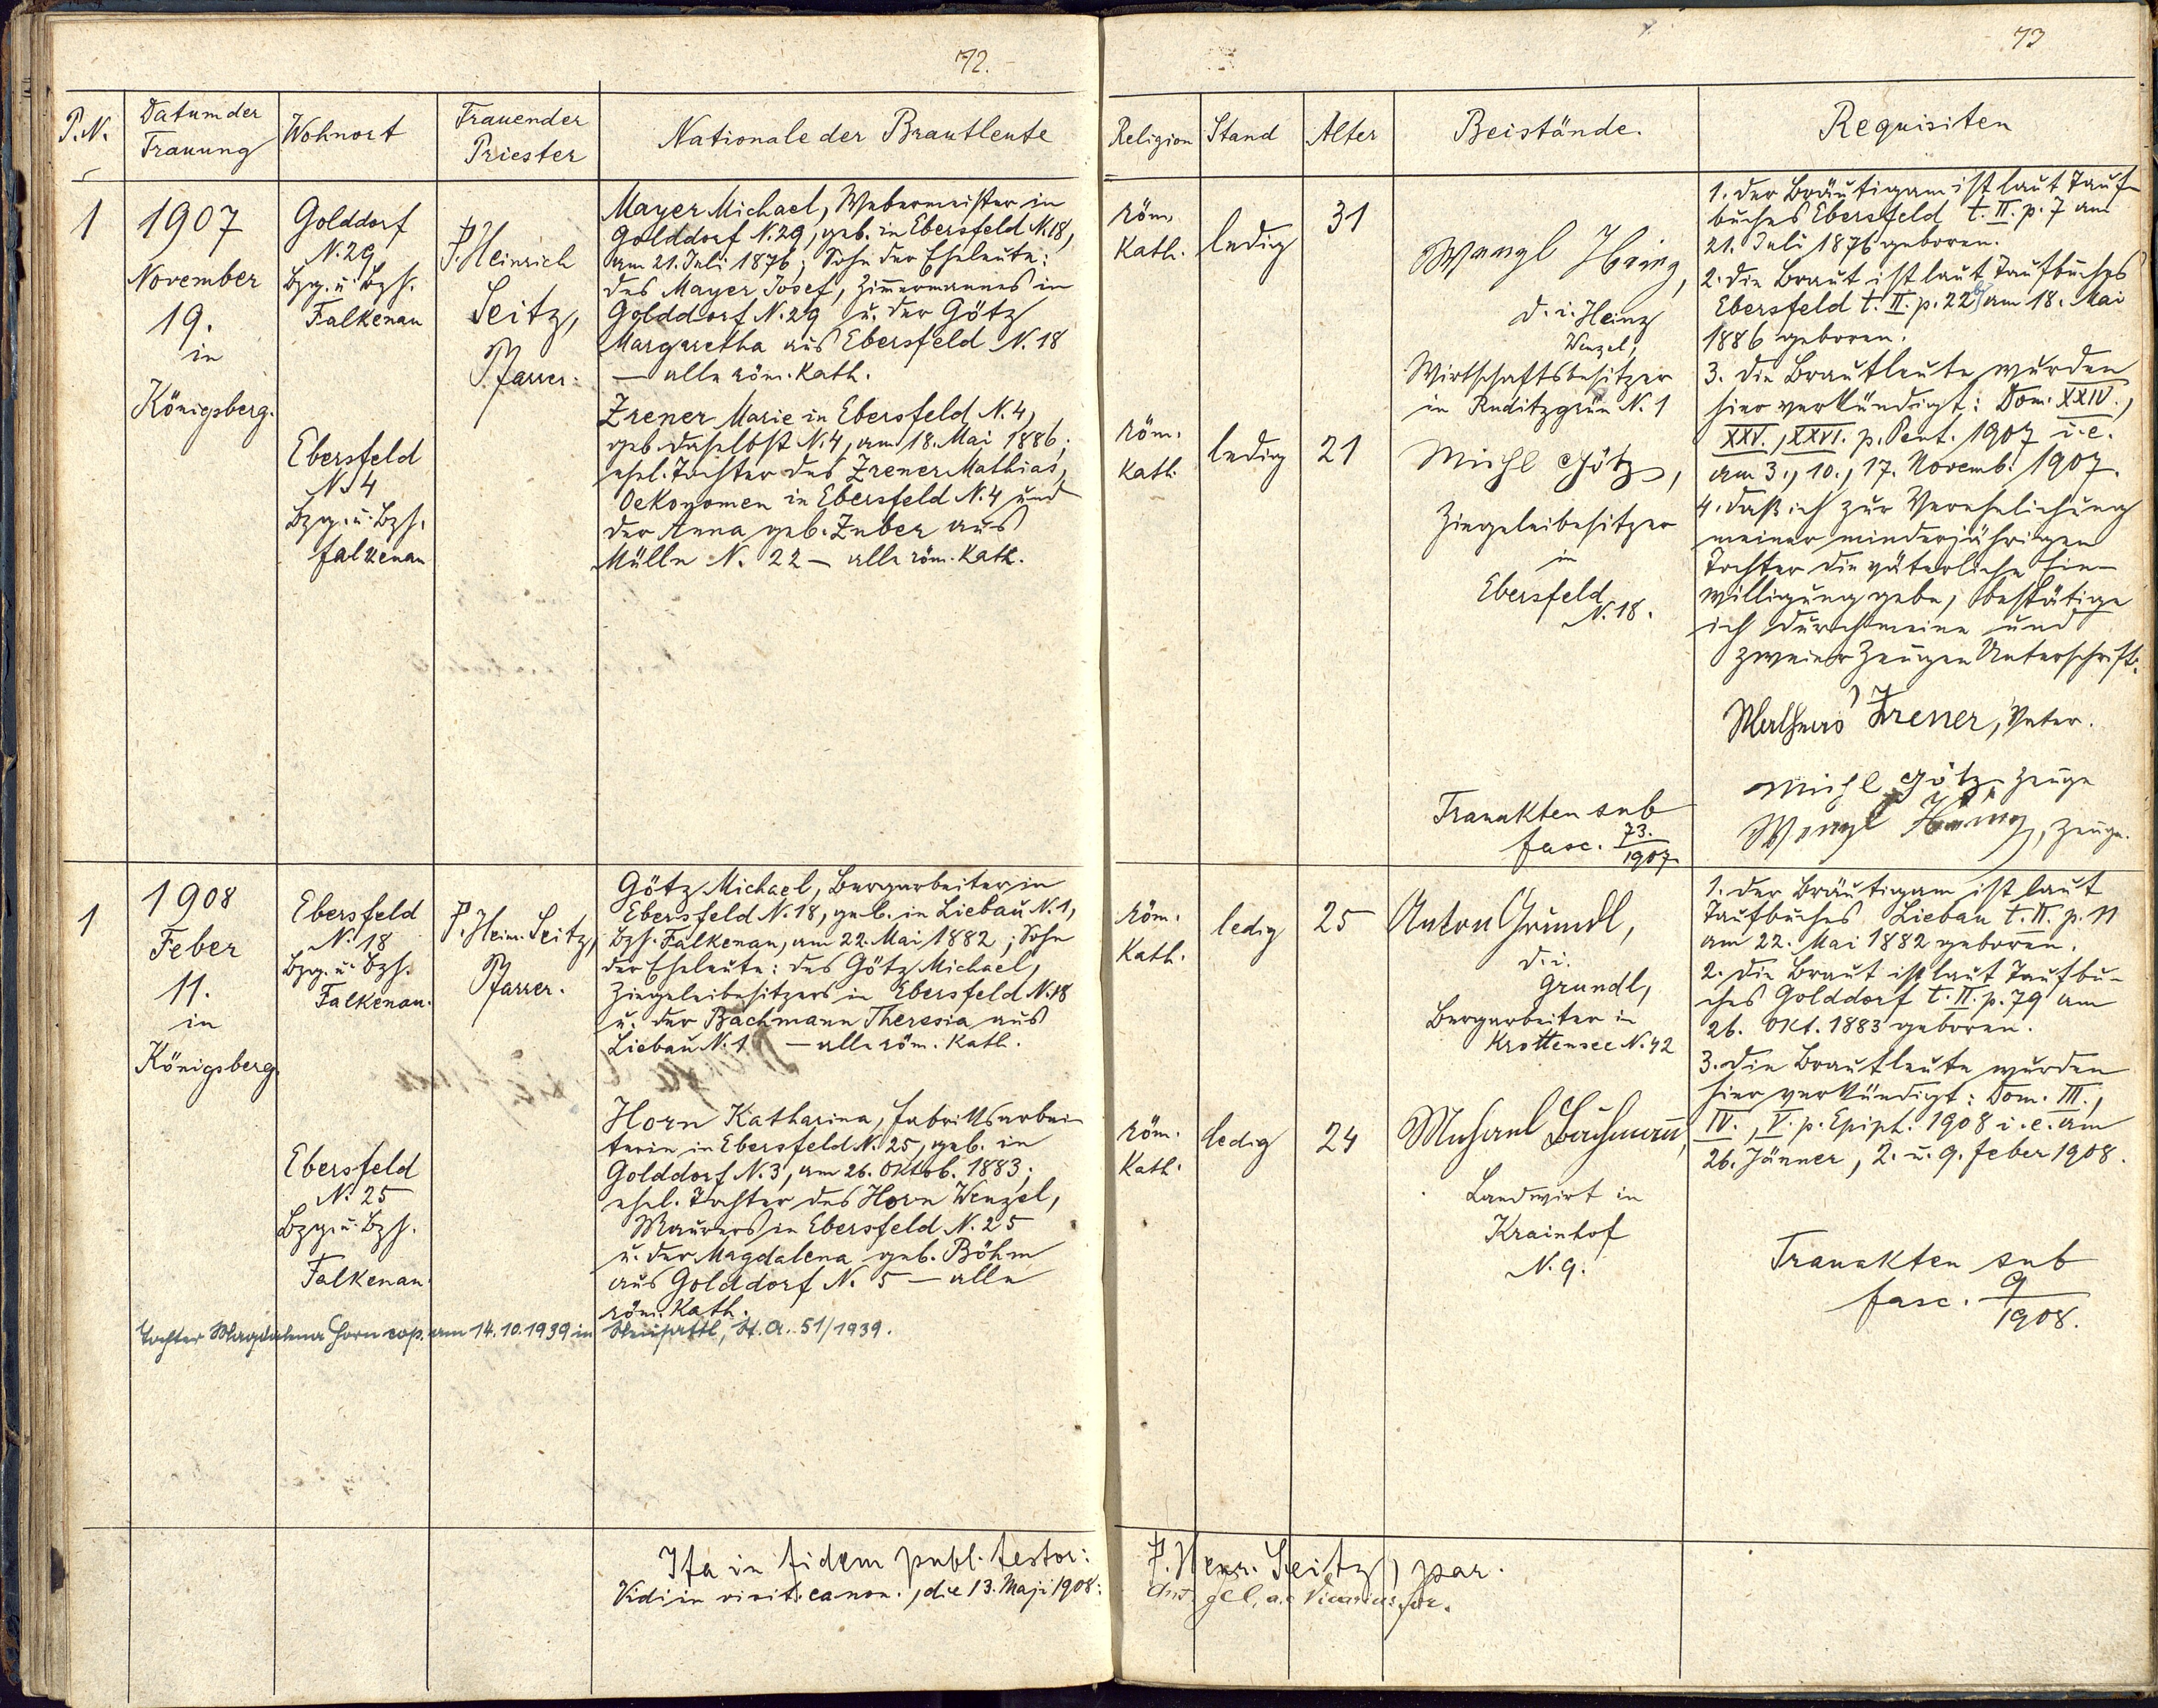 72.
P.N.
Datum der
Trauung
Wohnort
Trauender
Priester
Nationale der Brautleute
1
1907
November
19.
in
Königsberg.
Golddorf
N. 29
Bzg. u. Bzh.
Falkenau
P. Heinrich
Seitz,
Pfarrer.
Mayer Michael, Webermeister in
Golddorf N. 29, geb. in Ebersfeld N. 18,
am 21. Juli 1876; Sohn der Eheleute:
des Mayer Josef, Zimmermannes in
Golddorf N. 29 u. der Götz
Margaretha aus Ebersfeld N. 18
— alle röm. Kath.
Ebersfeld
N. 4
Bzg. u. Bzh.
Falkenau
Zrener Marie in Ebersfeld N. 4,
geb. daselbst N. 4, am 18. Mai 1886;
ehel. Tochter des Zrener Mathias,
Oekonomen in Ebersfeld N. 4 und
der Anna geb. Zuber aus
Mülln N. 22 — alle röm. Kath.
1
1908
Feber
11.
in
Königsberg.
Ebersfeld
N. 18
Bzg. u. Bzh.
Falkenau.
P. Heinr. Seitz,
Pfarrer.
Götz Michael, Bergarbeiter in
Ebersfeld N. 18, geb. in Liebau N. 1,
Bzh. Falkenau, am 22. Mai 1882; Sohn
der Eheleute: des Götz Michael,
Ziegeleibesitzers in Ebersfeld N. 18
u. der Bachmann Theresia aus
Liebau N. 1 — alle röm. Kath.
Ebersfeld
N. 25
Bzg. u. Bzh.
Falkenau.
Horn Katharina, Fabriksarbei-
terin in Ebersfeld N. 25, geb. in
Golddorf N. 3, am 26. Oktob. 1883;
ehel. Tochter des Horn Wenzel,
Maurers in Ebersfeld N. 25
u. der Magdalena geb. Böhm
aus Golddorf N. 5 — alle
röm. Kath.
Tochter Magdalena Horn cop. am 14.10.1939 in Neusattl, St. A. 51/1939.
Ita in fidem publ. testor:
Vidi in visit. canon., die 13. Maji 1908:
73
Religion
Stand
Alter
Beistände.
Requisiten
röm.
Kath.
ledig
31
Wenzl Heinz,
d. i. Heinz
Wenzel,
Wirtschaftsbesitzer
in Ruditzgrün N. 1
1. Der Bräutigam ist laut Tauf-
buches Ebersfeld t. II. p. 7 am
21. Juli 1876 geboren.
2. Die Braut ist laut Taufbuches
Ebersfeld t. II. p. 22 am 18. Mai
1886 geboren.
3. Die Brautleute wurden
hier verkündigt: Dom. XXIV.,
XXV., XXVI. p. Pent. 1907 i. e.
am 3., 10., 17. Novemb. 1907.
4. Daß ich zur Verehelichung
meiner minderjährigen
Tochter die väterliche Ein-
willigung gebe, bestätige
ich durch meine und
zweier Zeugen Unterschrift.
röm.
Kath.
ledig
21
Michl Götz,
Ziegeleibesitzer
in
Ebersfeld
N. 18.
Mathias Zrener, Vater.
Michl Götz, Zeuge
Wenzl Heinz, Zeuge.
Trauakten sub
fasc. 73./1907.
röm.
Kath.
ledig
25
Anton Grundl,
d. i.
Grundl,
Bergarbeiter in
Krottensee N. 42
1. Der Bräutigam ist laut
Taufbuches Liebau t. II. p. 11
am 22. Mai 1882 geboren.
2. Die Braut ist laut Taufbu-
ches Golddorf t. II. p. 79 am
26. Okt. 1883 geboren.
3. Die Brautleute wurden
hier verkündigt: Dom. III.,
IV., V. p. Epiph. 1908 i. e. am
26. Jänner, 2. u. 9. Feber 1908.
röm.
Kath.
ledig
24
Michael Bachmann,
Landwirt in
Krainhof
N. 9.
Trauakten sub
fasc. 9/1908.
P. Henr. Seitz, par.